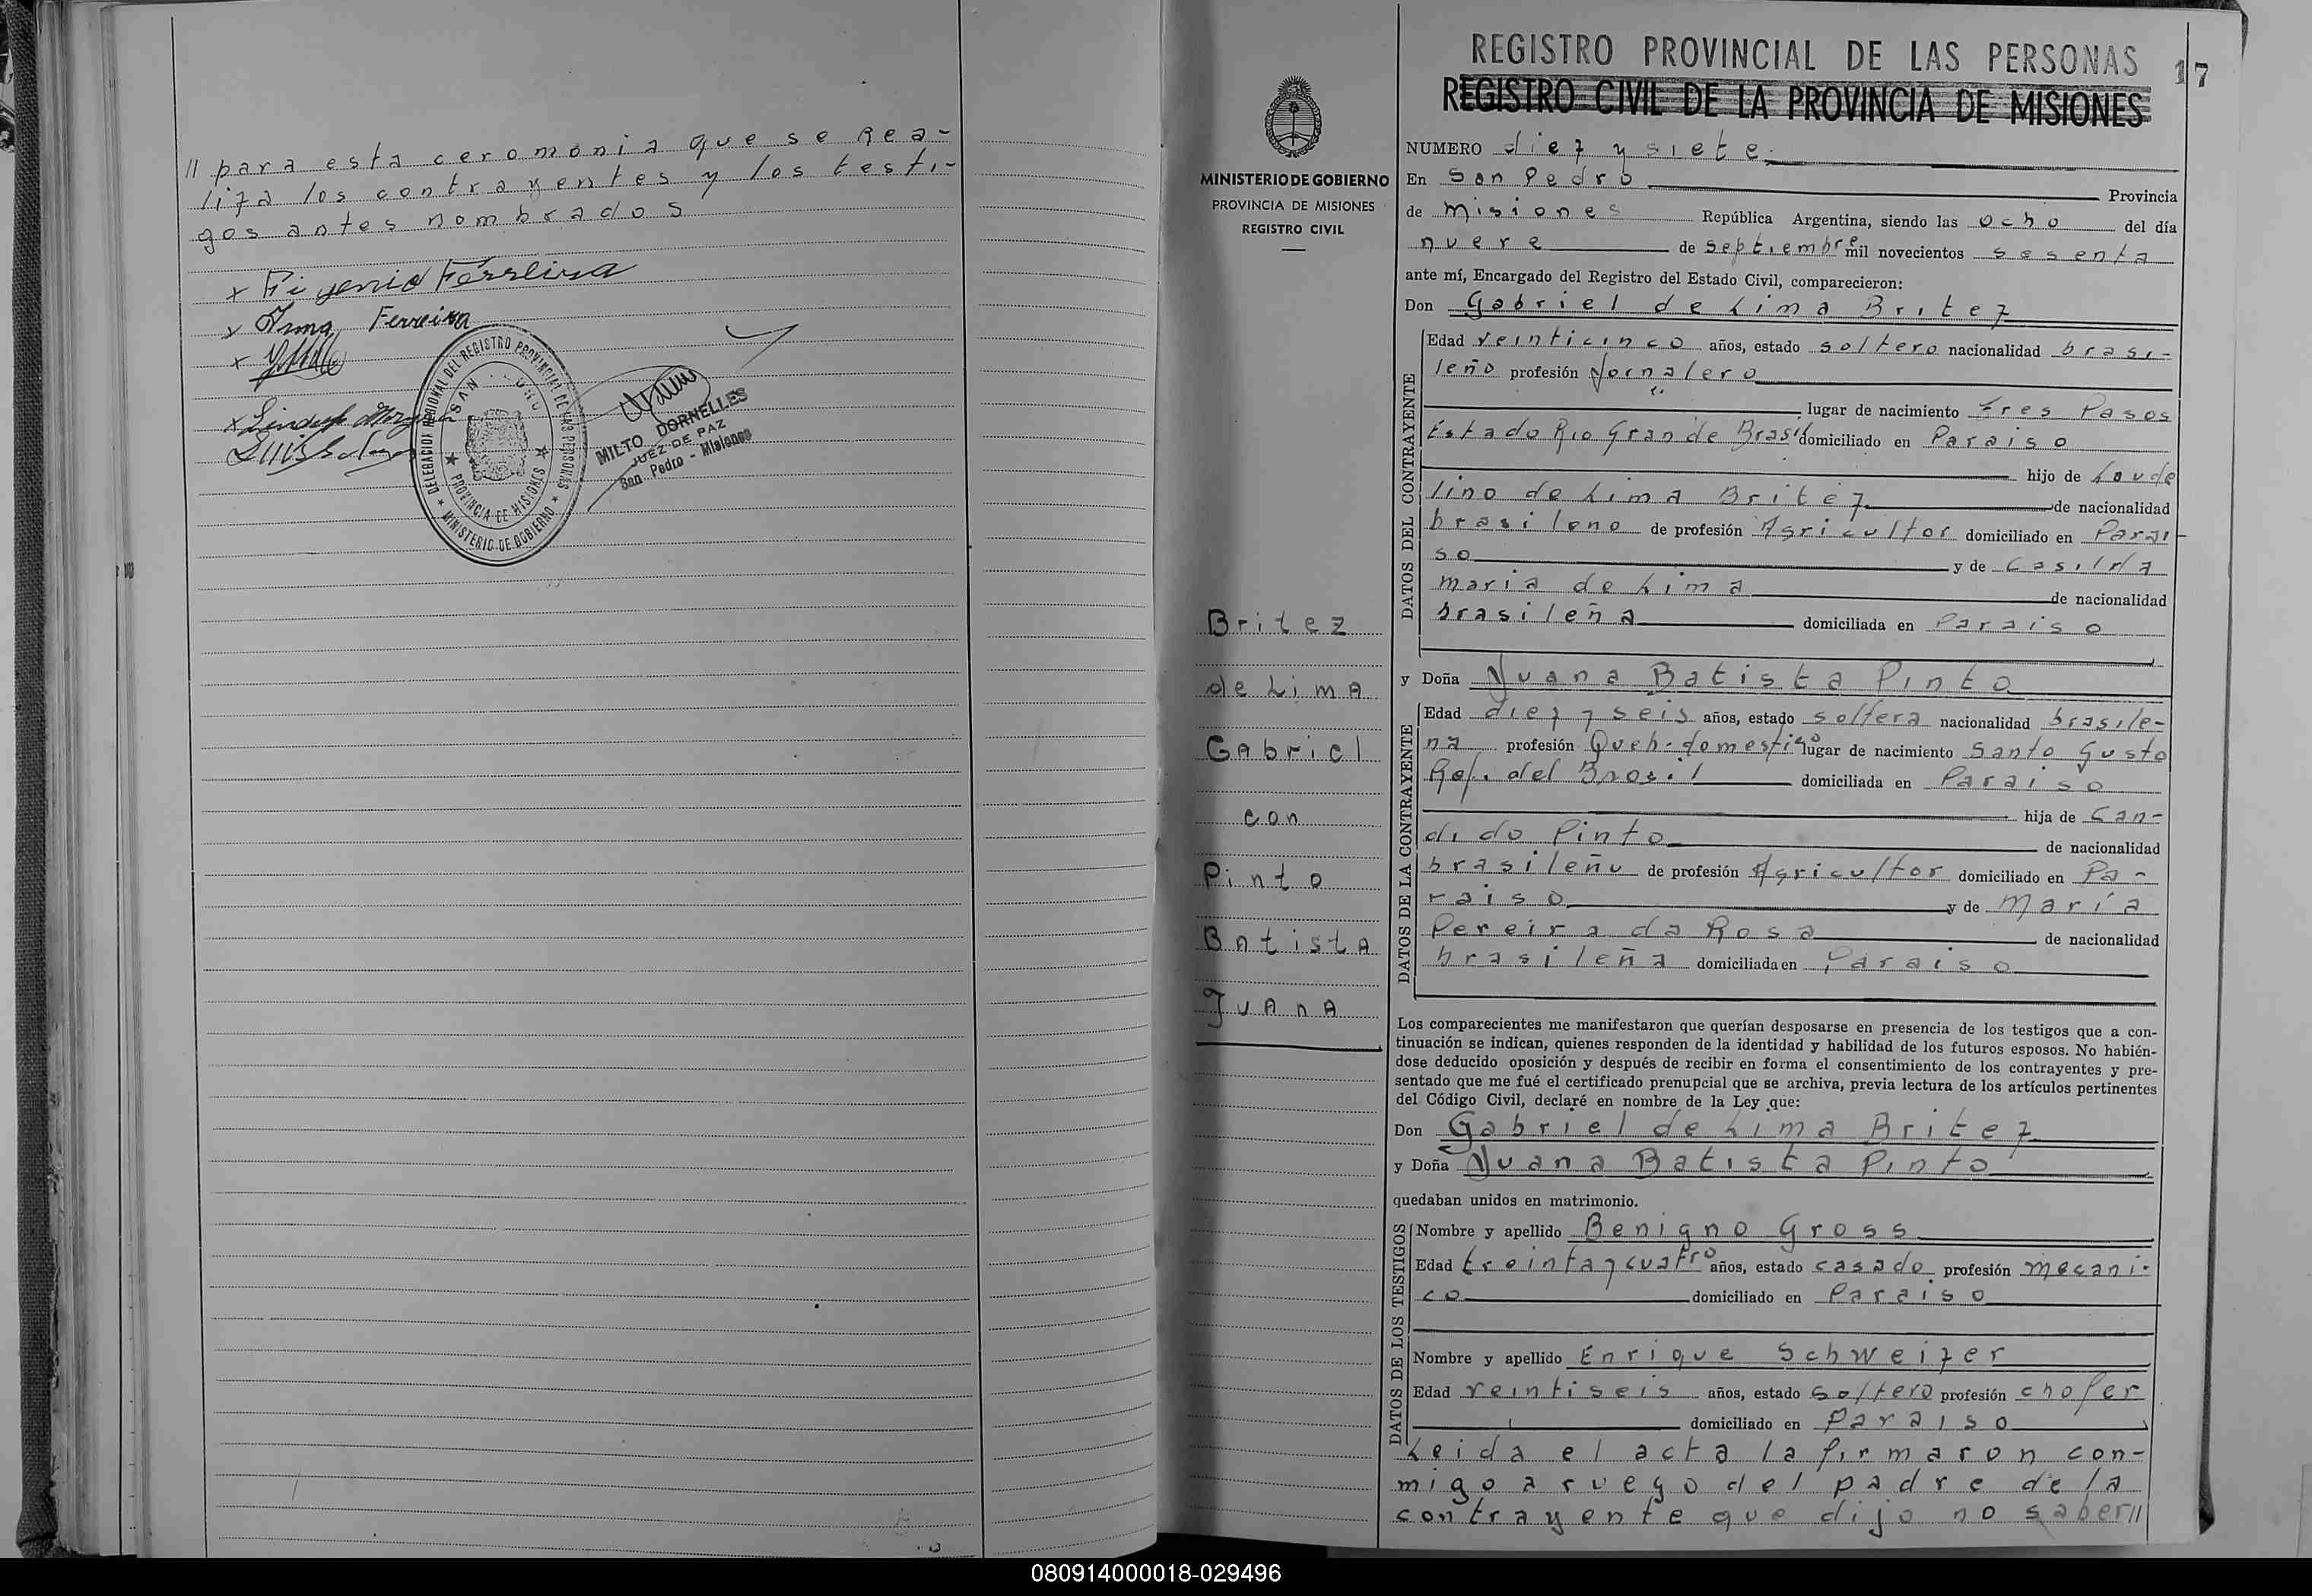 // para esta ceromonia que se Rea-
liza los contrayentes y los testi-
gos antes nombrados
x Ferreira
x Irma Ferreira
x
x
DELEGACION REGIONAL DEL REGISTRO PROVINCIAL DE LAS PERSONAS
SAN PEDRO
PROVINCIA DE MISIONES
MINISTERIO DE GOBIERNO
MILTO DORNELLES
JUEZ DE PAZ
San Pedro - Misiones
MINISTERIO DE GOBIERNO
PROVINCIA DE MISIONES
REGISTRO CIVIL
Britez
de Lima
Gabriel
con
Pinto
Batista
Juana
REGISTRO PROVINCIAL DE LAS PERSONAS
17
REGISTRO CIVIL DE LA PROVINCIA DE MISIONES
NUMERO diez y siete
En San Pedro Provincia
de Misiones República Argentina, siendo las ocho del día
nueve de septiembre mil novecientos sesenta
ante mí, Encargado del Registro del Estado Civil, comparecieron:
Don Gabriel de Lima Britez
DATOS DEL CONTRAYENTE
Edad veinticinco años, estado soltero nacionalidad brasi-
leño profesión Jornalero
lugar de nacimiento tres Pasos
Estado Rio Gran de Brasil domiciliado en Paraiso
hijo de Loude
lino de Lima Britez de nacionalidad
brasileno de profesión Agricultor domiciliado en Parai-
so y de Casilda
maria de Lima de nacionalidad
brasileña domiciliada en Paraiso
y Doña Juana Batista Pinto
DATOS DE LA CONTRAYENTE
Edad diez y seis años, estado soltera nacionalidad brasile-
na profesión Queh. domestico lugar de nacimiento Santo Gusto
Rep. del Brasil domiciliada en Paraiso
hija de Can-
dido Pinto de nacionalidad
brasileño de profesión Agricultor domiciliado en Pa-
raiso y de maria
Pereira da Rosa de nacionalidad
brasileña domiciliada en Paraiso
Los comparecientes me manifestaron que querían desposarse en presencia de los testigos que a con-
tinuación se indican, quienes responden de la identidad y habilidad de los futuros esposos. No habién-
dose deducido oposición y después de recibir en forma el consentimiento de los contrayentes y pre-
sentado que me fué el certificado prenupcial que se archiva, previa lectura de los artículos pertinentes
del Código Civil, declaré en nombre de la Ley que:
Don Gabriel de Lima Britez
y Doña Juana Batista Pinto
quedaban unidos en matrimonio.
DATOS DE LOS TESTIGOS
Nombre y apellido Benigno Gross
Edad treinta y cuatro años, estado casado profesión mecani-
co domiciliado en Paraiso
Nombre y apellido Enrique Schweizer
Edad veintiseis años, estado soltero profesión chofer
domiciliado en Paraiso
Leida el acta la firmaron con-
migo a ruego del padre de la
contrayente que dijo no saber//
080914000018-029496